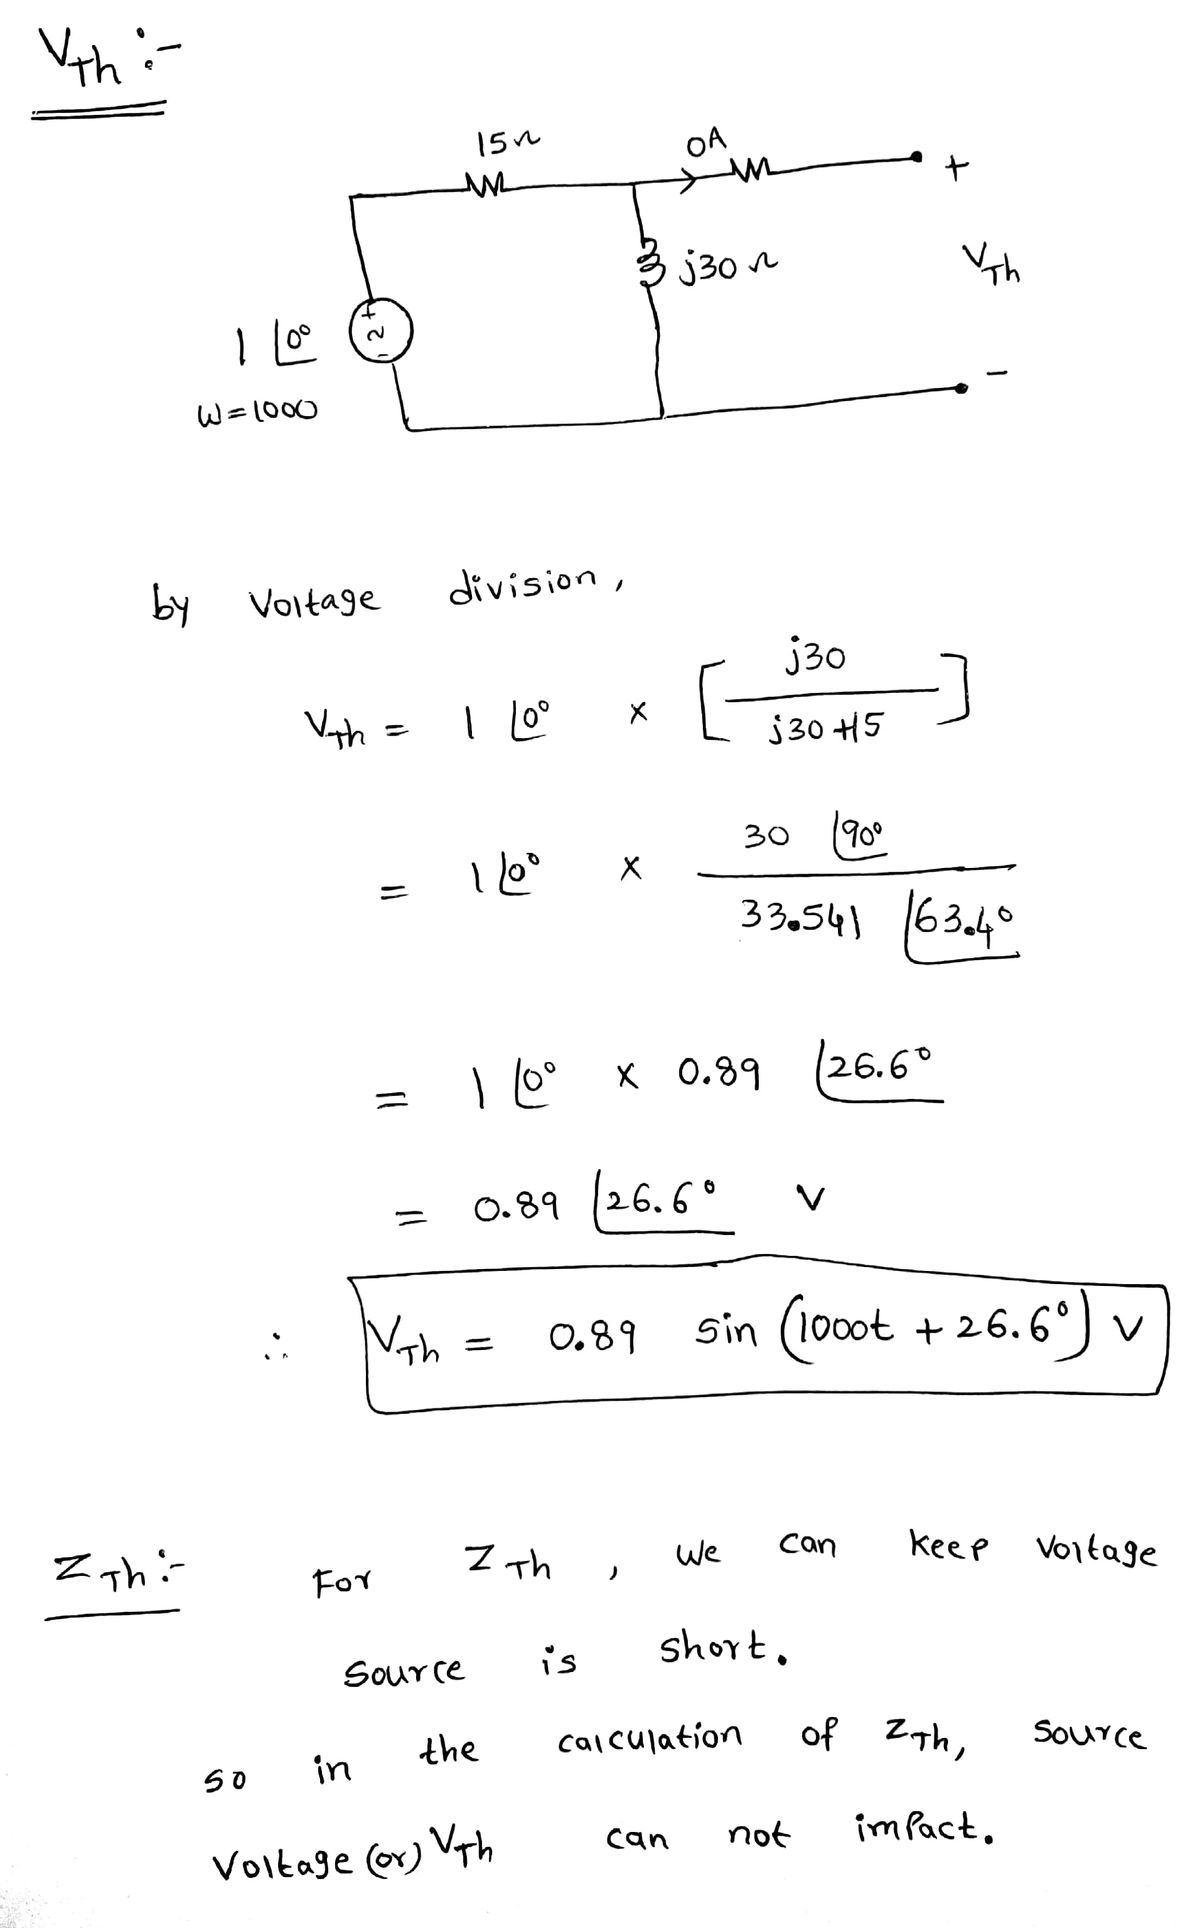 VTh :-
15Ω
0A
+
j30 Ω
VTh
1 ∠0°
+
~
-
-
W=1000
by Voltage division,
VTh = 1 ∠0° × [ j30 / j30+15 ]
= 1 ∠0° × 30 ∠90° / 33.541 ∠63.4°
= 1 ∠0° × 0.89 ∠26.6°
= 0.89 ∠26.6° V
∴ VTh = 0.89 sin (1000t + 26.6°) V
ZTh :- For ZTh , we can keep Voltage
Source is short.
so in the calculation of ZTh, Source
Voltage (or) VTh can not impact.